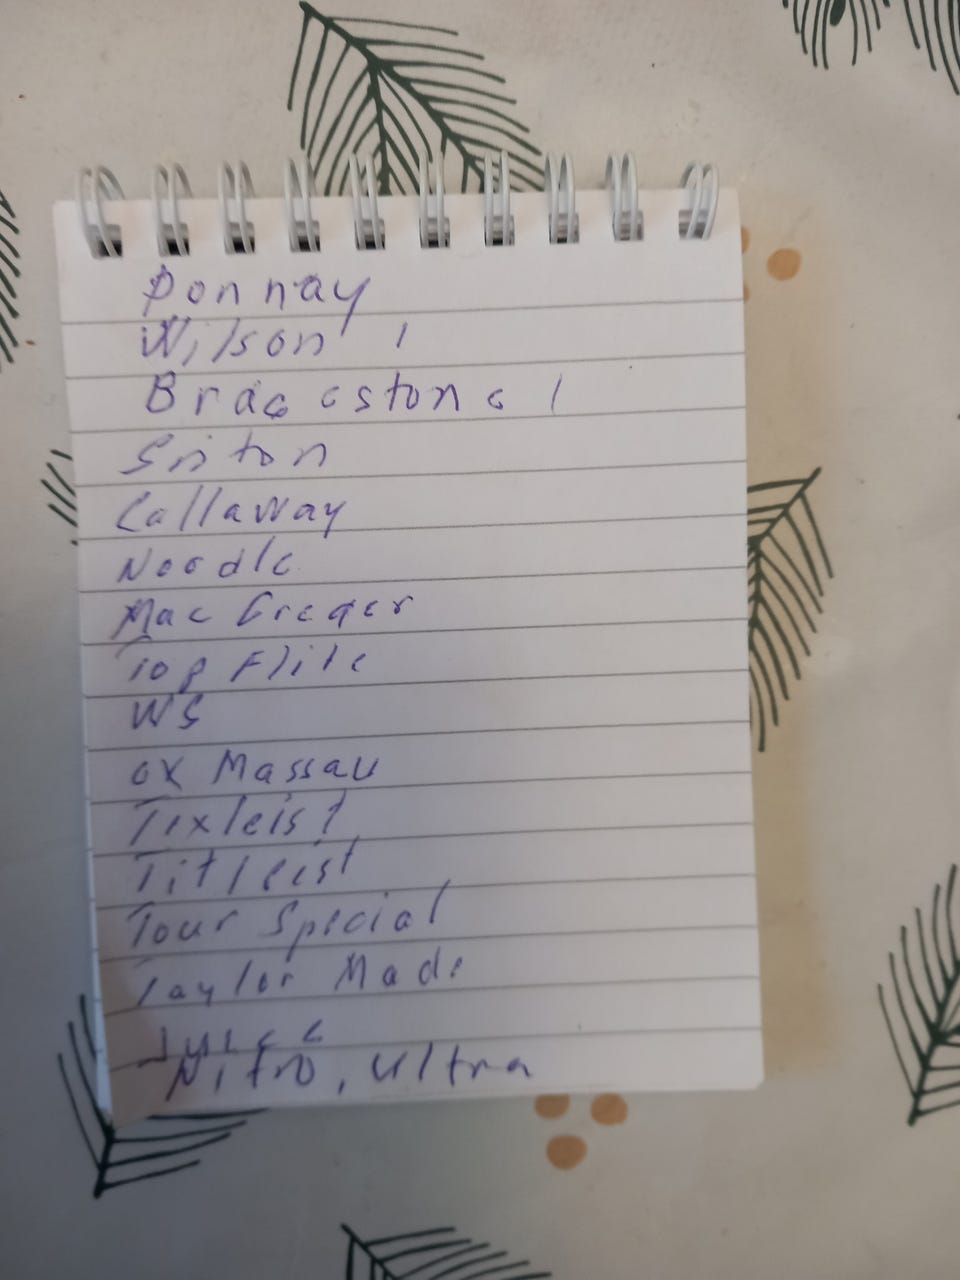 Donnay
Wilson 1
Bracestone 1
Sriton
Callaway
Noodle
Mac Greger
Top Flite
WS
ox Massau
Tixleist
Titleist
Tour Special
Taylor Made
Juice
Nitro, Ultra